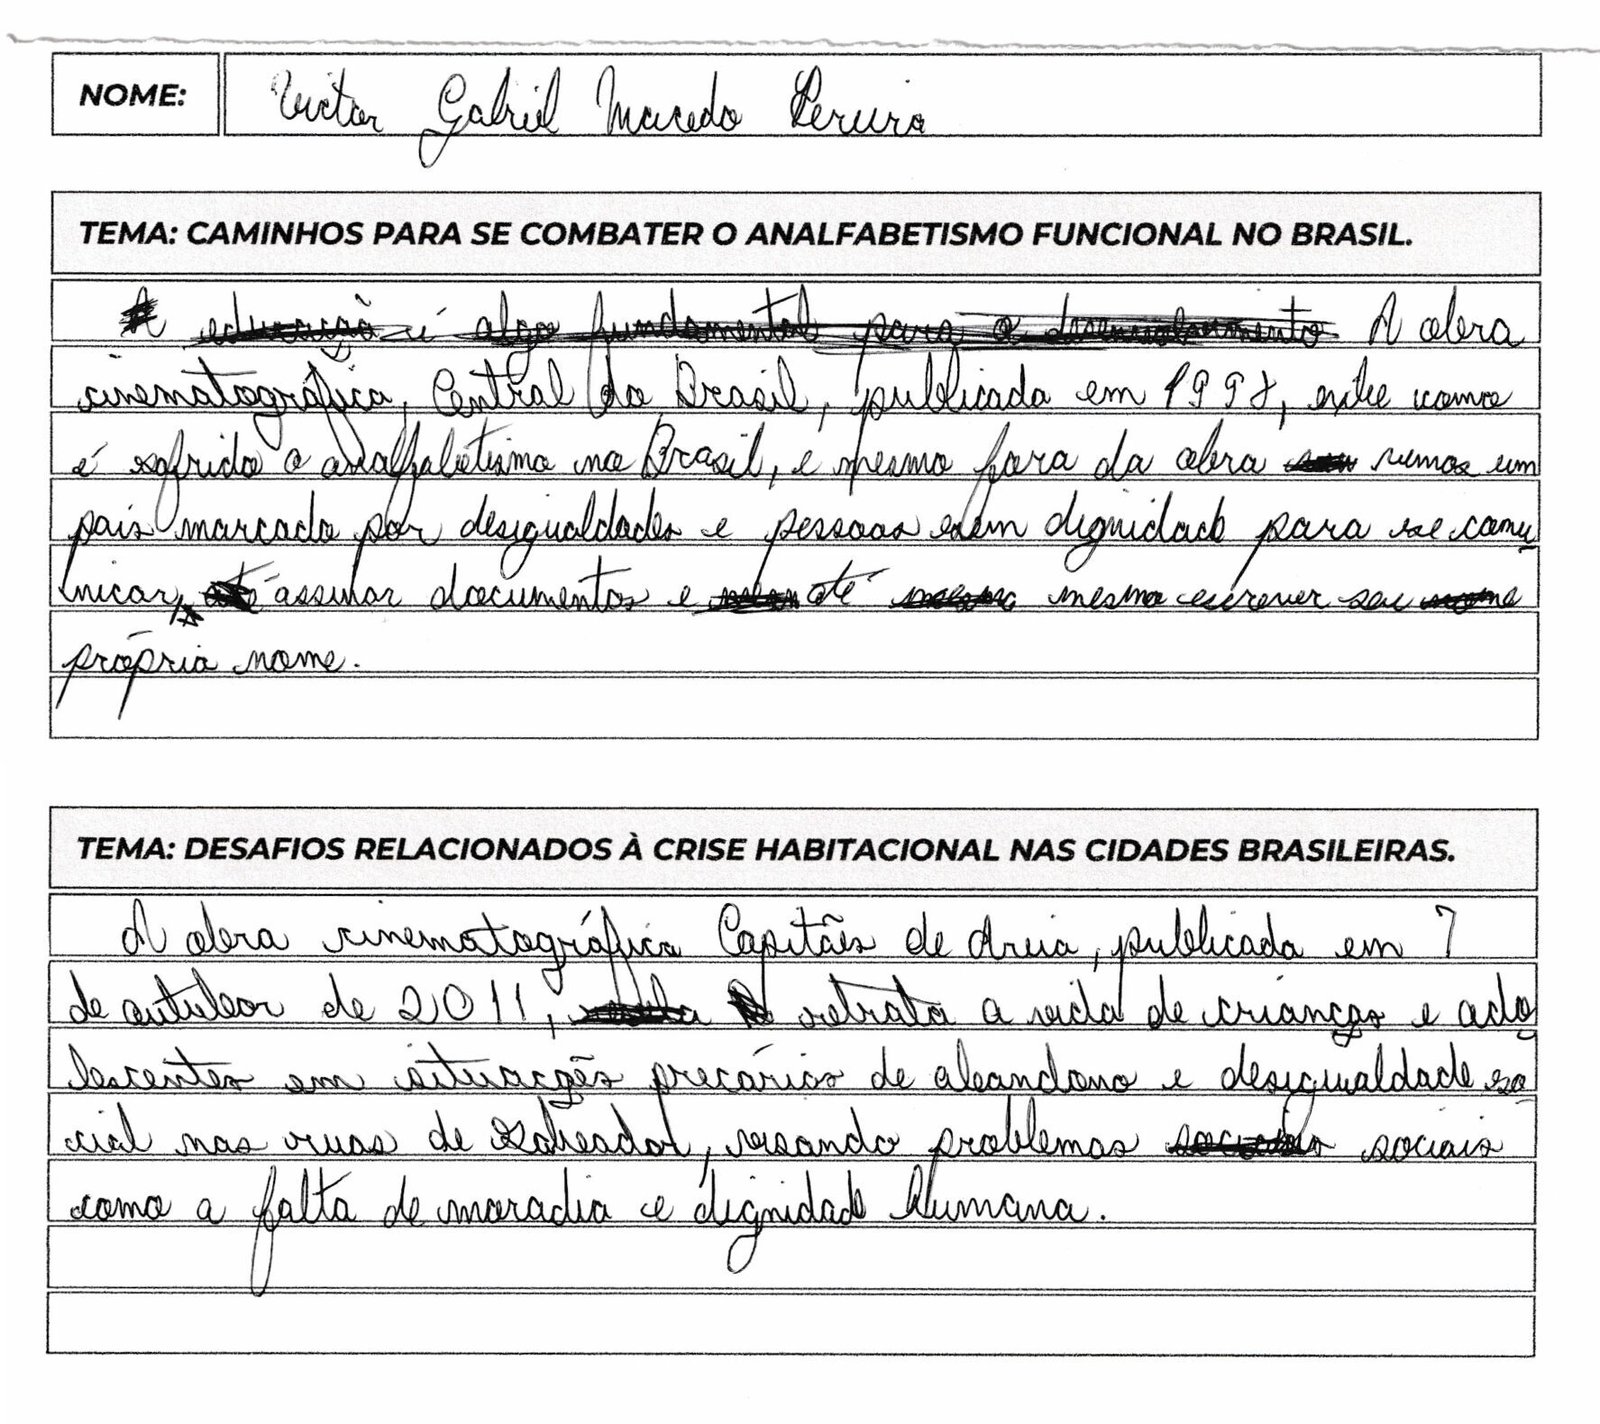 NOME: Victor Gabriel Macedo Pereira
TEMA: CAMINHOS PARA SE COMBATER O ANALFABETISMO FUNCIONAL NO BRASIL.
A educação é algo fundamental para o desenvolvimento A obra
cinematográfica, Central do Brasil, publicada em 1998, exibe como
é sofrido o analfabetismo no Brasil, e mesmo fora da obra vemos um
país marcado por desigualdades e pessoas sem dignidade para se comu
nicar, assinar documentos e até mesmo escrever seu nome
próprio nome.
TEMA: DESAFIOS RELACIONADOS À CRISE HABITACIONAL NAS CIDADES BRASILEIRAS.
A obra cinematográfica Capitães de Areia, publicada em 7
de outubor de 2011, retrata a vida de crianças e ado
lescentes em situações precárias de abandono e desigualdade so
cial nas ruas de Salvador, visando problemas sociais sociais
como a falta de moradia e dignidade humana.